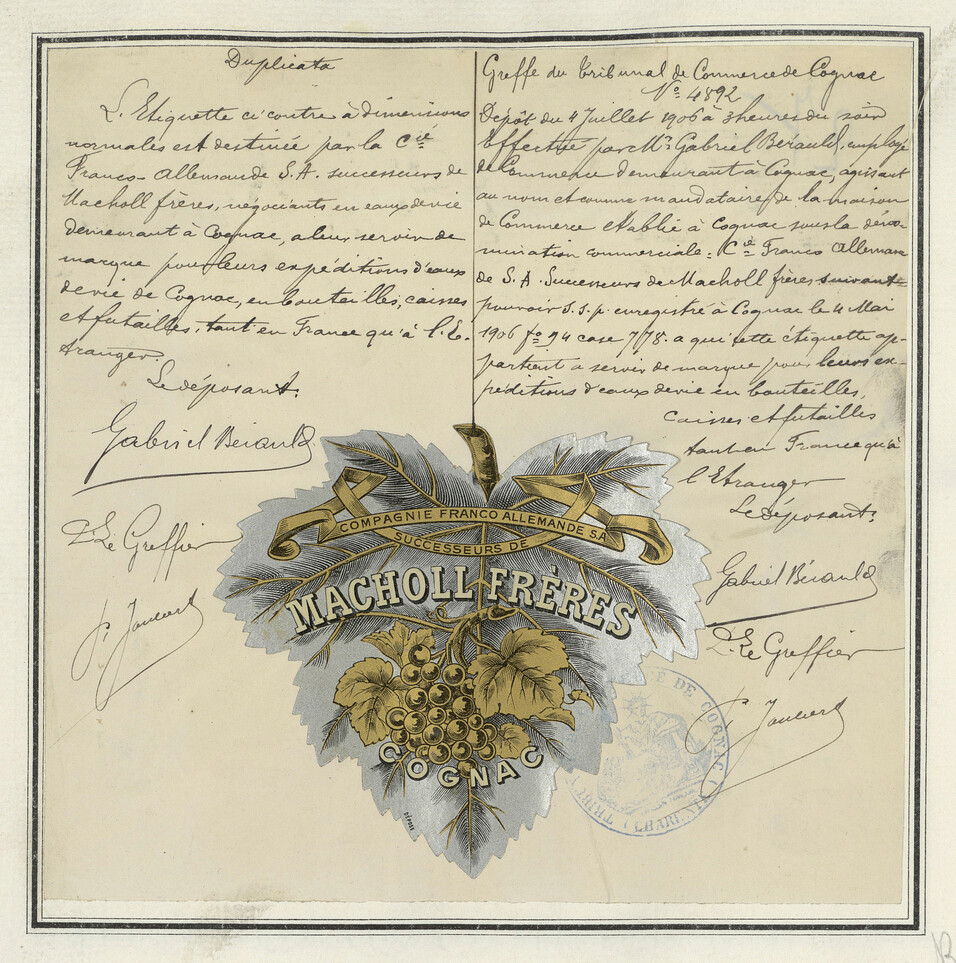 Duplicata
L'Etiquette ci contre à dimensions
normales est destinée par la Cie
Franco-Allemande S.A. successeurs de
Macholl frères, négociants en eaux de vie
demeurant à Cognac, à leur servir de
marque pour leurs expéditions d'eaux
de vie de Cognac, en bouteilles, caisses
et futailles, tant en France qu'à l'E-
tranger.
Le déposant.
Gabriel Bérauld
Le Greffier
Greffe du Tribunal de Commerce de Cognac
No 4892
Dépôt du 4 Juillet 1906 à 3 heures du soir
Effectué par Mr Gabriel Bérauld, employé
de Commerce demeurant à Cognac, agissant
au nom et comme mandataire de la maison
de Commerce établie à Cognac sous la déno-
mination commerciale: Cie Franco Alleman
de S.A. Successeurs de Macholl frères suivant
pouvoir s.s.p. enregistré à Cognac le 4 Mai
1906 fo 94 case 778. a qui cette étiquette ap-
partient a servir de marque pour leurs ex-
péditions d'eaux de vie en bouteilles,
caisses et futailles
tant en France qu'à
l'Etranger
Le déposant.
Gabriel Bérauld
Le Greffier
COMPAGNIE FRANCO ALLEMANDE S.A.
SUCCESSEURS DE
MACHOLL FRÈRES
COGNAC
DÉPOSÉ
DE COGNAC (CHARENTE)